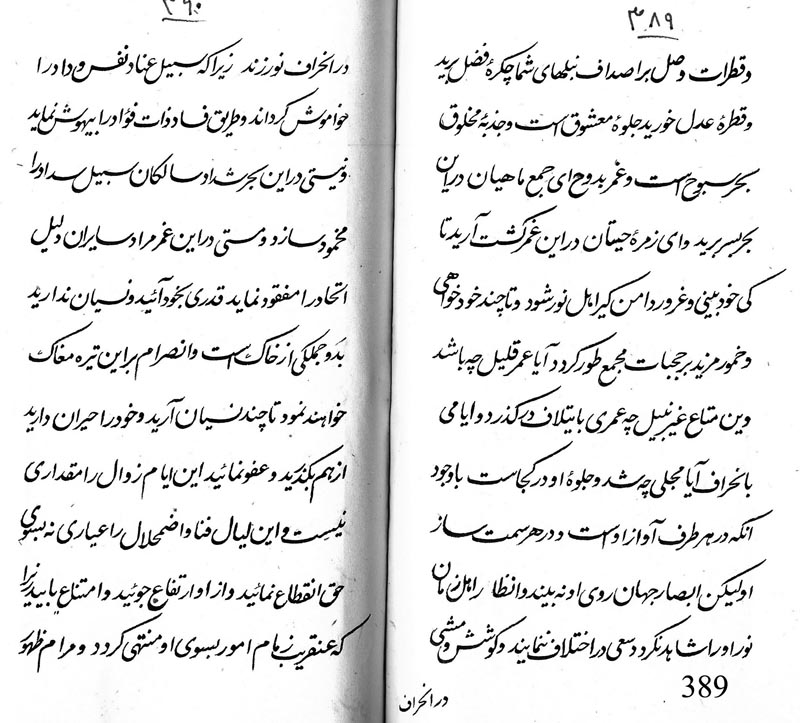 ۳۸۹
و قطرات وصل بر اصداف نبلهای شما چکرهٔ فضل برید
و قطرهٔ عدل خورید جلوهٔ معشوق است و جذبهٔ مخلوق
بحر سبوح است و غمر بدوح ای جمع ماهیان در این
بحر بسر برید و ای زمرهٔ حیتان در این غمر گشت آرید تا
کی خود بینی و غرور دامن گیر اهل نور شود و تا چند خود خواهی
و خمور مزید بر حجبات مجمع طور گردد آیا عمر قلیل چه باشد
وین متاع غیر نبیل چه عمری بایتلاف درگذرد و ایامی
بانحراف آیا مجلی چه شد و جلوهٔ او در کجاست باوجود
انکه در هر طرف آواز او است و در هر سمت ساز
او لیکن ابصار جهان روی او نه بیند و انظار اهل زمان
نور او را شاهد نگردد سعی در اختلاف ننمایند و کوشش و مشی
389
در انحراف
۳۹۰
در انحراف نورزند زیرا که سبیل عناد نفس و داد را
خواموش گرداند و طریق فساد ذات فؤاد را بیهوش نماید
و نیستی در این بحر شداد سالکان سبیل سداد را
محمود سازد و مستی در این غمر مراد سایران دلیل
اتحاد را مفقود نماید قدری بخود آئید و نسیان ندارید
بدو جملگی از خاک است و انصرام بر این تیره مغاک
خواهند نمود تا چند نسیان آرید و خود را حیران دارید
از هم بگذرید و عفو نمائید این ایام زوال را مقداری
نیست و این لیال فنا و اضمحلال را عیاری نه بسوی
حق انقطاع نمائید و از او ارتفاع جوئید و امتناع یابید زیرا
که عنقریب زمام امور بسوی او منتهی گردد و مرام ظهور